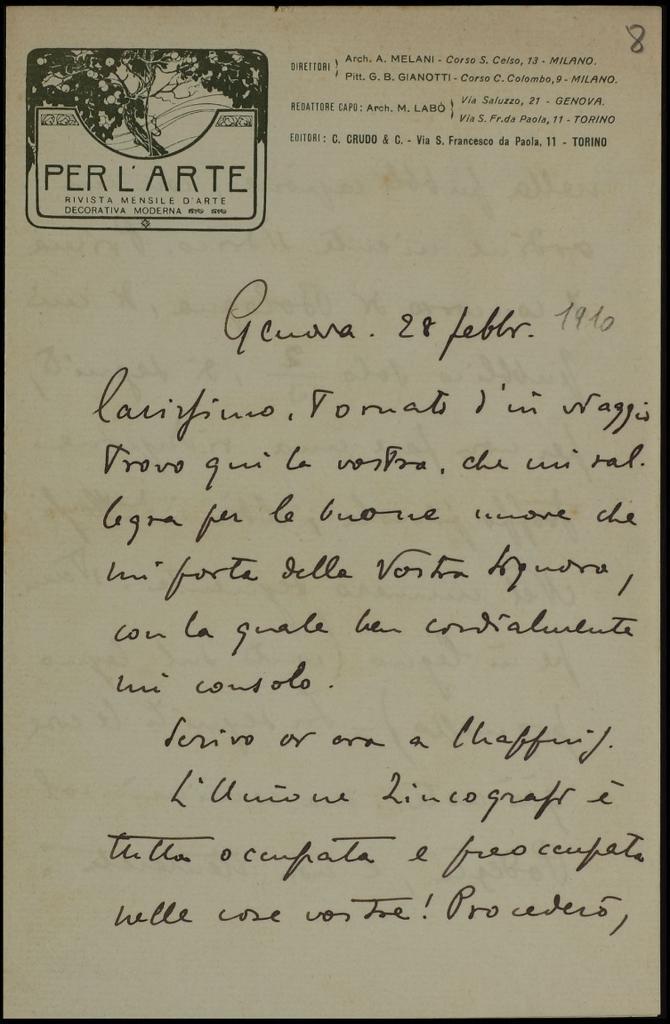 8
DIRETTORI } Arch. A. MELANI - Corso S. Celso, 13 - MILANO.
Pitt. G. B. GIANOTTI - Corso C. Colombo, 9 - MILANO.
REDATTORE CAPO: Arch. M. LABÒ } Via Saluzzo, 21 - GENOVA.
Via S. Fr. da Paola, 11 - TORINO
EDITORI: C. CRUDO & C. - Via S. Francesco da Paola, 11 - TORINO
PER L'ARTE
RIVISTA MENSILE D'ARTE
DECORATIVA MODERNA
Genova. 28 febbr. 1910
Carissimo, Tornato d'un viaggio
trovo qui la vostra, che mi ral-
legra per le buone nuove che
mi porta della Vostra Signora,
con la quale ben cordialmente
mi consolo.
Scrivo or ora a
L'Unione Zincografi è
tutta occupata e preoccupata
nelle cose vostre! Procederò,